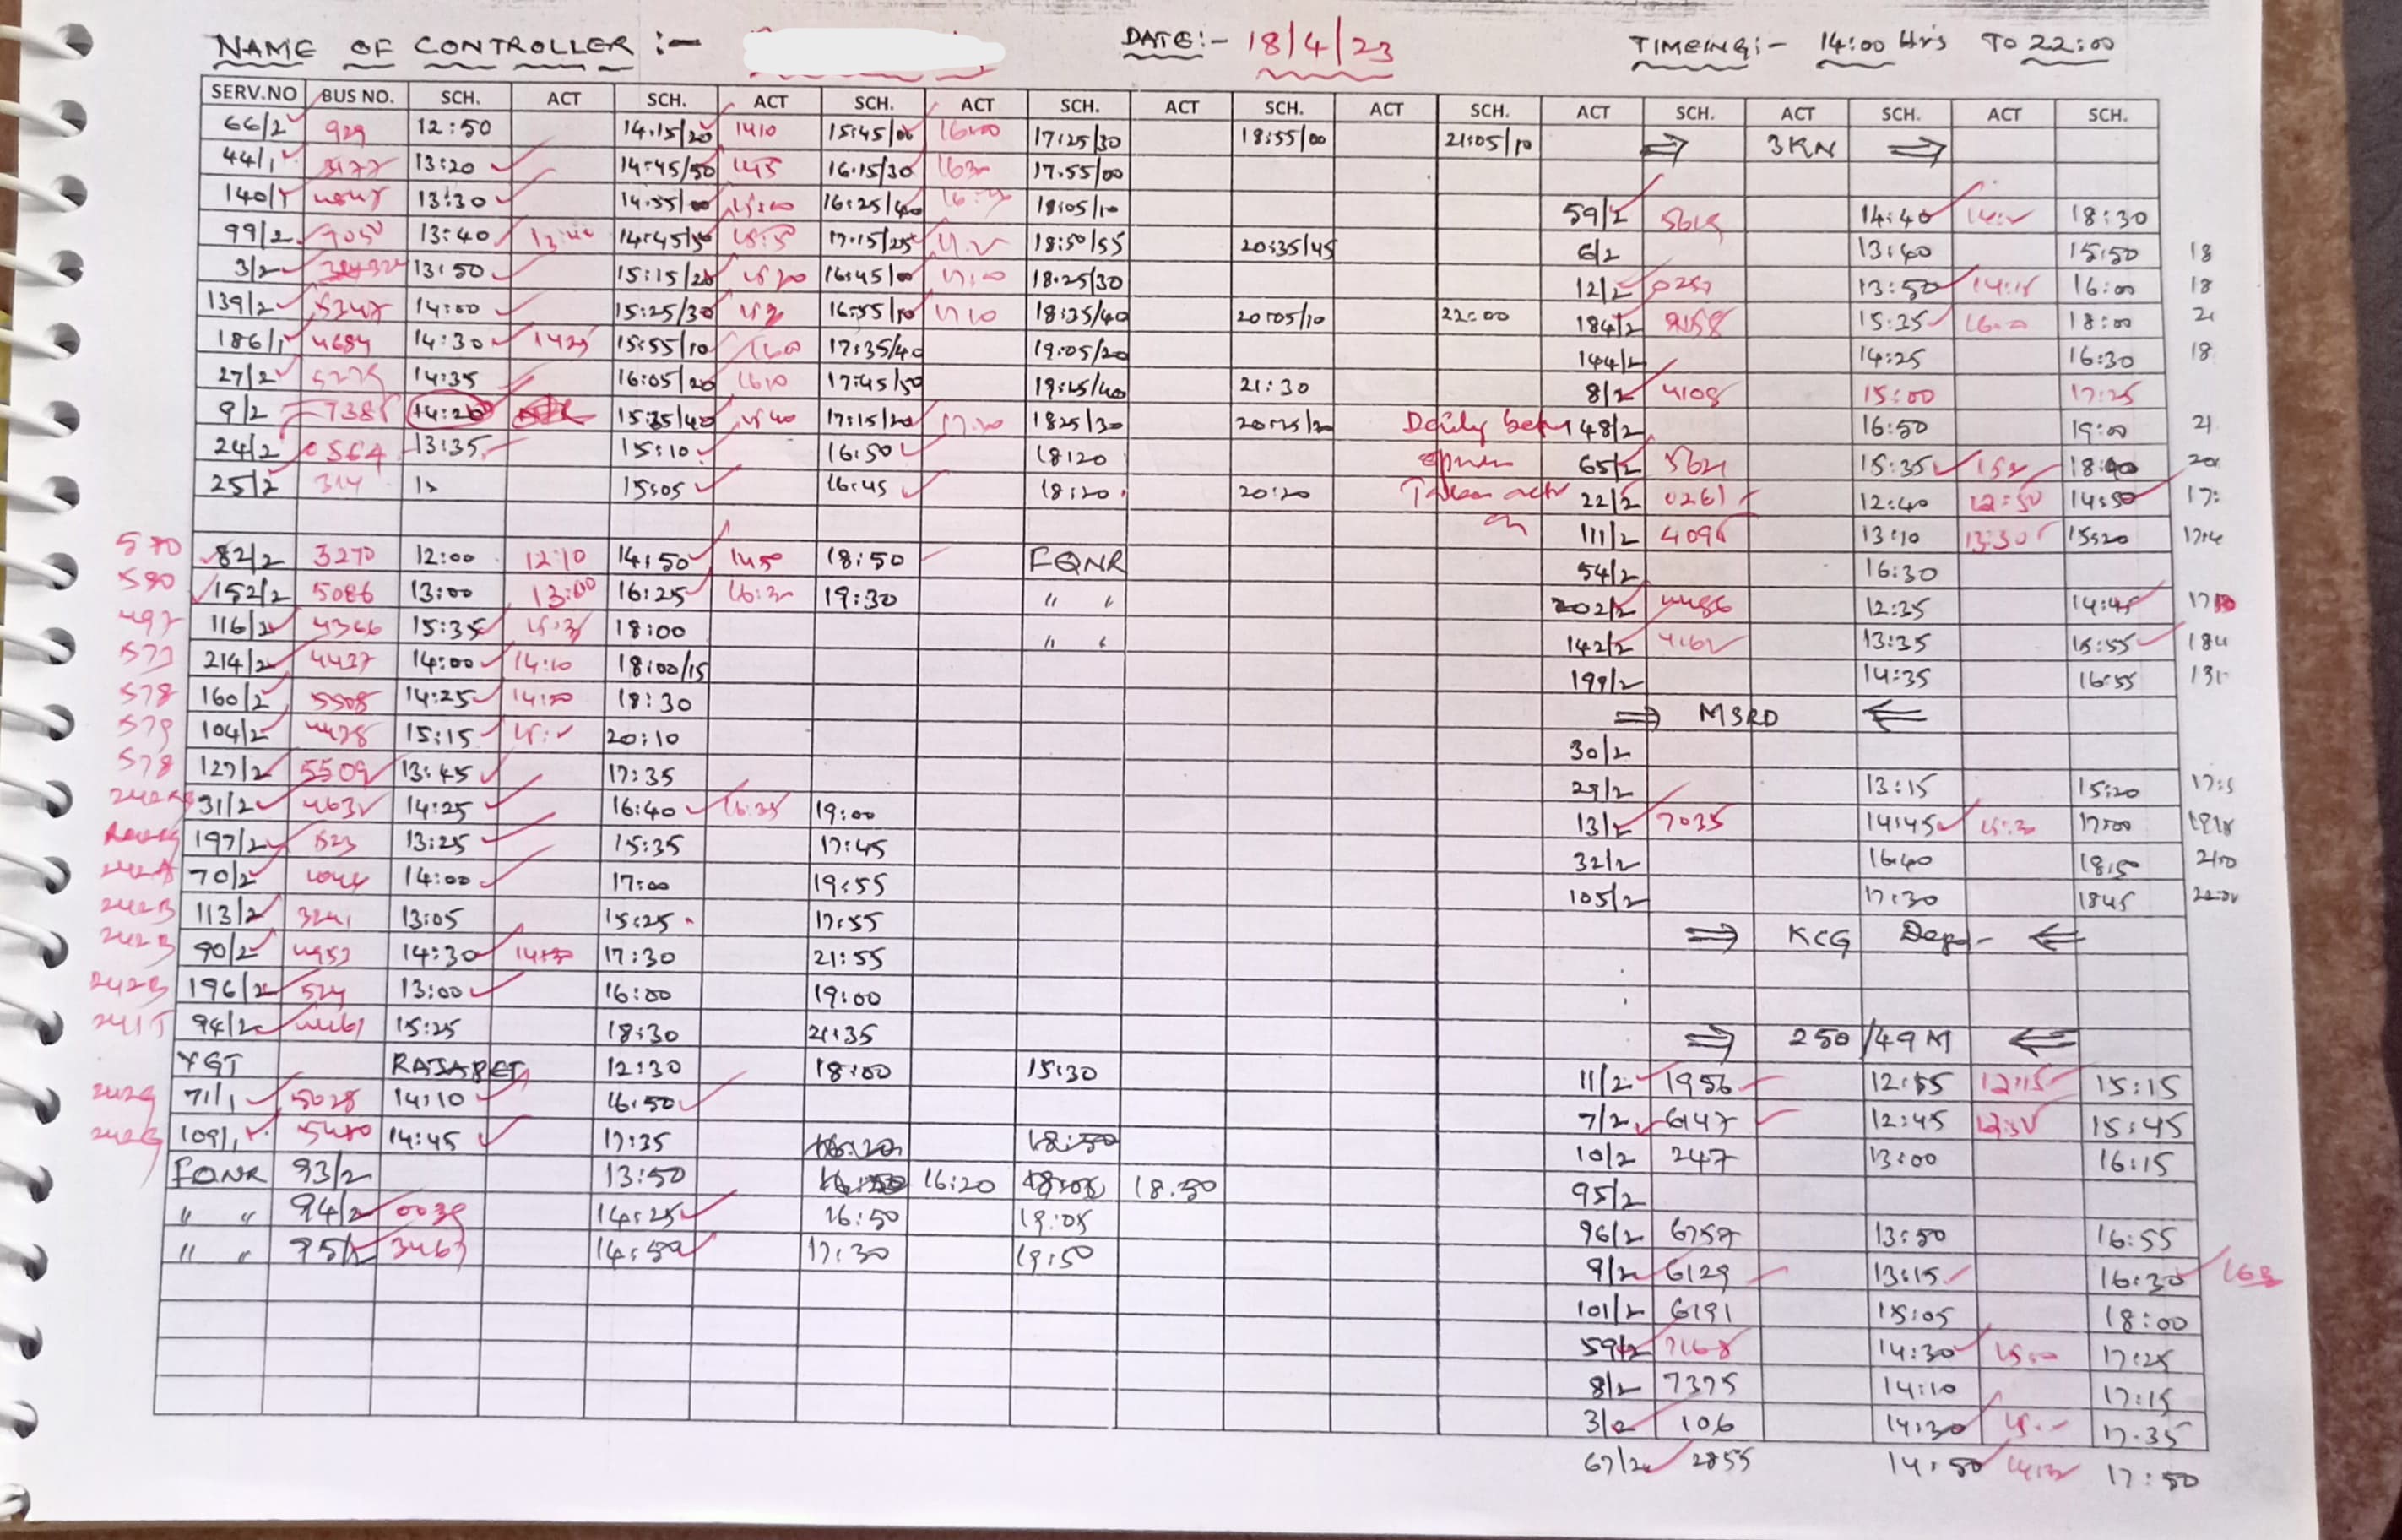 NAME OF CONTROLLER :- DATE:- 18/4/23 TIMEING:- 14:00 Hrs TO 22:00
SERV.NO BUS NO. SCH. ACT SCH. ACT SCH. ACT SCH. ACT SCH. ACT SCH. ACT SCH. ACT SCH. ACT SCH.
66/2 929 12:50 14.15/20 1410 15:45/00 16:00 17:25/30 18:55/00 21:05/10 ⇒ 3KN ⇒
44/1 3177 13:20 14:45/50 145 16.15/30 1630 17.55/00
140/1 13:30 14.55/00 15:00 16:25/40 18:05/10 59/2 14:40 18:30
99/2 9050 13:40 13:40 14:45/50 17:15/25 18:50/55 20:35/45 6/2 13:40 15:50 18
3/2 13:50 15:15/20 16:45/00 17:00 18.25/30 12/2 0257 13:50 14:15 16:00 18
139/2 5347 14:00 15:25/30 16:55/10 1710 18:35/40 20:05/10 22:00 184/2 15:25 18:00 21
186/1 4684 14:30 1425 15:55/10 1600 17:35/40 19:05/20 144/2 14:25 16:30 18
27/2 14:35 16:05/20 1610 17:45/50 19:25/40 21:30 8/2 4108 15:00 17:25
9/2 7385 14:20 15:35/40 15:40 17:15/20 17:20 1825/30 Daily 48/2 16:50 19:00 21
24/2 0564 13:35 15:10 16:50 18:20 65/2 5621 15:35 18:00 20
25/2 314 15:05 16:45 18:20 20:20 Taken 22/2 0261 12:40 12:50 14:50 17:
111/2 4096 13:10 13:30 15:20
570 82/2 3270 12:00 12:10 14:50 1450 18:50 FQNR 54/2 16:30
590 152/2 5086 13:00 13:00 16:25 16:30 19:30 " " 202/2 4486 12:25 14:45
497 116/2 4366 15:35 15:35 18:00 " " 142/2 4162 13:35 15:55
577 214/2 4427 14:00 14:10 18:00/15 199/2 14:35 16:55
578 160/2 5508 14:25 14:30 18:30 ⇒ MSRD ⇐
579 104/2 4478 15:15 20:10 30/2
578 127/2 5509 13:45 17:35 29/2 13:15 15:20
31/2 4632 14:25 16:40 16:35 19:00 13/2 7035 14:45 15:30 17:00
197/2 523 13:25 15:35 17:45 32/2 16:40 18:50
242A 70/2 14:00 17:00 19:55 105/2 17:30 1845
242B 113/2 3241 13:05 15:25 17:55 ⇒ KCG ⇐
242B 90/2 4953 14:30 14:30 17:30 21:55
242B 196/2 524 13:00 16:00 19:00
241T 94/2 4461 15:25 18:30 21:35 ⇒ 250/49M ⇐
YGT RAJAPET 12:30 18:00 15:30 11/2 1956 12:15 12:15 15:15
242G 71/1 5028 14:10 16:50 7/2 6147 12:45 15:45
242G 109/1 5480 14:45 17:35 16:20 18:50 10/2 247 13:00 16:15
FQNR 93/2 13:50 16:50 16:20 18:05 18.50 95/2
" " 94/2 0039 14:25 16:50 19:05 96/2 6757 13:50 16:55
" " 95/2 3463 14:50 17:30 19:50 9/2 6129 13:15 16:30
101/2 6191 15:05 18:00
59/2 7168 14:30 15:00 17:25
8/2 7375 14:10 17:15
3/2 106 14:30 17.35
67/2 2855 14:50 17:50